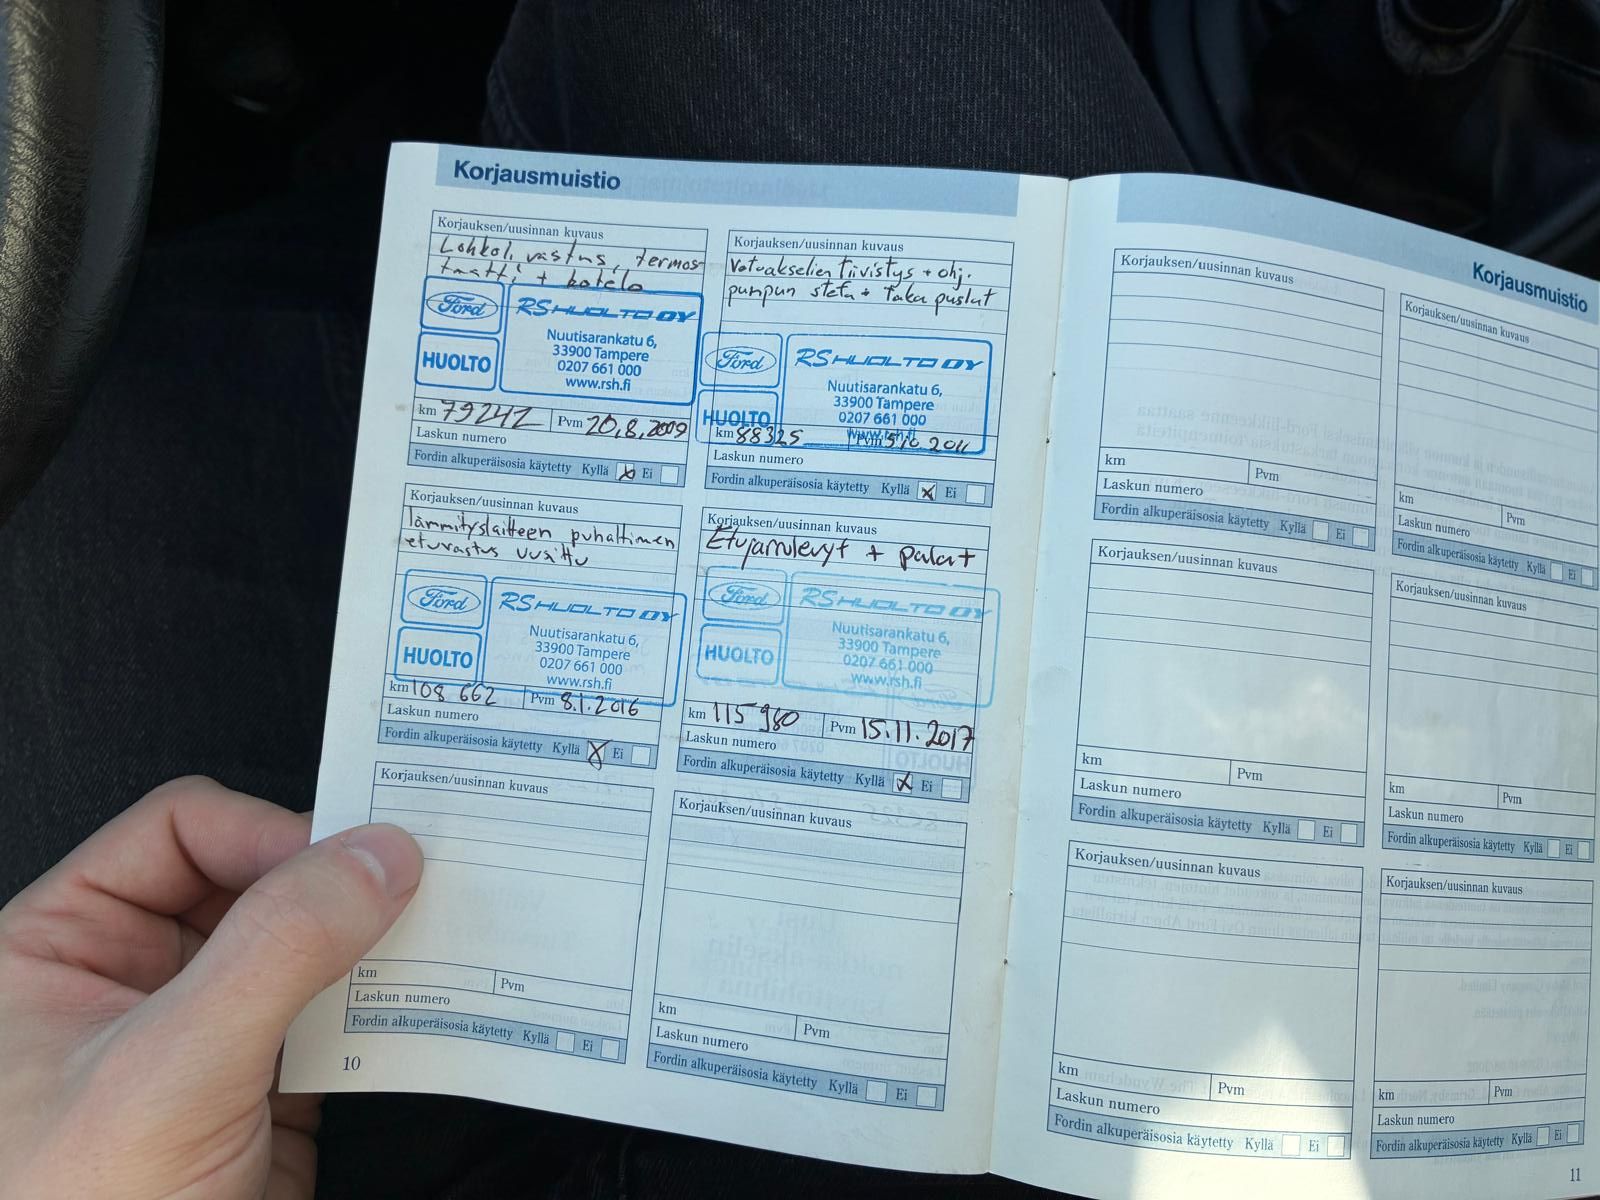 Korjausmuistio
Korjauksen/uusinnan kuvaus
Lohkol. vastus, termos-
taatti + kotelo
Ford
HUOLTO
RS HUOLTO OY
Nuutisarankatu 6,
33900 Tampere
0207 661 000
www.rsh.fi
km 79242 Pvm 20.8.2009
Laskun numero
Fordin alkuperäisosia käytetty Kyllä x Ei
Korjauksen/uusinnan kuvaus
Vetoakselien tiivistys + ohj.
pumpun stefa + taka puslat
Ford
HUOLTO
RS HUOLTO OY
Nuutisarankatu 6,
33900 Tampere
0207 661 000
www.rsh.fi
km 88325 Pvm 2011
Laskun numero
Fordin alkuperäisosia käytetty Kyllä x Ei
Korjauksen/uusinnan kuvaus
lämmityslaitteen puhaltimen
etuvastus uusittu
Ford
HUOLTO
RS HUOLTO OY
Nuutisarankatu 6,
33900 Tampere
0207 661 000
www.rsh.fi
km 108 662 Pvm 8.1.2016
Laskun numero
Fordin alkuperäisosia käytetty Kyllä X Ei
Korjauksen/uusinnan kuvaus
Etujarrulevyt + palat
Ford
HUOLTO
RS HUOLTO OY
Nuutisarankatu 6,
33900 Tampere
0207 661 000
www.rsh.fi
km 115 980 Pvm 15.11.2017
Laskun numero
Fordin alkuperäisosia käytetty Kyllä x Ei
Korjauksen/uusinnan kuvaus
km Pvm
Laskun numero
Fordin alkuperäisosia käytetty Kyllä Ei
Korjauksen/uusinnan kuvaus
km Pvm
Laskun numero
Fordin alkuperäisosia käytetty Kyllä Ei
10
Korjausmuistio
Korjauksen/uusinnan kuvaus
km Pvm
Laskun numero
Fordin alkuperäisosia käytetty Kyllä Ei
Korjauksen/uusinnan kuvaus
km Pvm
Laskun numero
Fordin alkuperäisosia käytetty Kyllä Ei
Korjauksen/uusinnan kuvaus
km Pvm
Laskun numero
Fordin alkuperäisosia käytetty Kyllä Ei
Korjauksen/uusinnan kuvaus
km Pvm
Laskun numero
Fordin alkuperäisosia käytetty Kyllä Ei
Korjauksen/uusinnan kuvaus
km Pvm
Laskun numero
Fordin alkuperäisosia käytetty Kyllä Ei
Korjauksen/uusinnan kuvaus
km Pvm
Laskun numero
Fordin alkuperäisosia käytetty Kyllä Ei
11